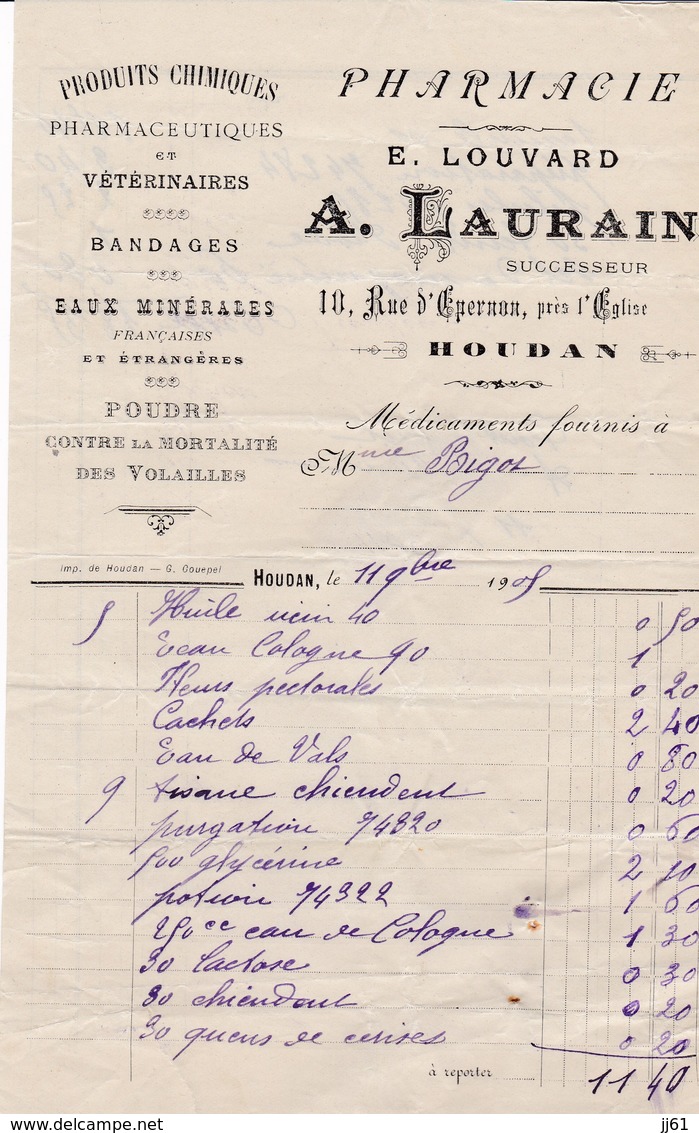 PRODUITS CHIMIQUES
PHARMACEUTIQUES
ET
VÉTÉRINAIRES
BANDAGES
EAUX MINÉRALES
FRANÇAISES
ET ÉTRANGÈRES
POUDRE
CONTRE LA MORTALITÉ
DES VOLAILLES
PHARMACIE
E. LOUVARD
A. LAURAIN
SUCCESSEUR
10, Rue d'Epernon, près l'Eglise
HOUDAN
Médicaments fournis à
Mme Bigot
Imp. de Houdan — G. Gouepel
HOUDAN, le 11 9bre 1905
5 Huile ricin 40 0 50
Eau Cologne 90 1
Fleurs pectorales 0 20
Cachets 2 40
Eau de Vals 0 80
9 tisane chiendent 0 20
purgation 74320 0 60
500 glycérine 2 10
potion 74322 1 60
250cc eau de Cologne 1 30
30 lactose 0 30
30 chiendent 0 20
30 queues de cerises 0 20
à reporter 11 40
delcampe.net
jj61